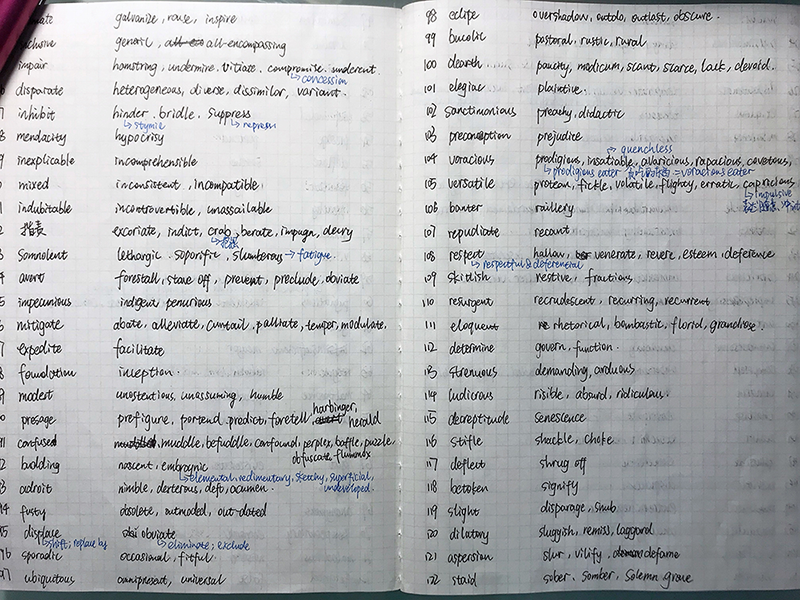 galvanize, rouse, inspire
generic, all-encompassing
impair hamstring, undermine. vitiate. compromise. undercut.
concession
disparate heterogeneous, diverse, dissimilar, variant.
inhibit hinder. bridle. suppress
stymie repress
mendacity hypocrisy
inexplicable incomprehensible
mixed inconsistent, incompatible
indubitable incontrovertible, unassailable
excoriate, indict, crab, berate, impugn, decry
Somnolent lethargic. soporific, slumberous → fatigue.
avert forestall, stave off, prevent, preclude, obviate
impecunious indigent penurious
mitigate abate, alleviate, curtail, palliate, temper, modulate.
expedite facilitate
foundation inception.
modest unostentious, unassuming, humble
harbinger,
presage prefigure, portend. predict, foretell, herald
confused muddle, befuddle, confound, perplex, baffle, puzzle.
obfuscate, flummox
budding nascent, embryonic
elemental, redimentary, sketchy, superficial,
adroit nimble, dexterous, deft, acumen. undeveloped.
94 fusty obsolete, outmoded, out-dated
95 displace obviate
shift; replace by eliminate; exclude
96 sporadic occasional, fitful.
97 ubiquitous omnipresent, universal
98 eclipse overshadow, outdo, outlast, obscure.
99 bucolic pastoral, rustic, rural
100 dearth paucity, modicum, scant, scarce, lack, devoid.
101 elegiac plaintive.
102 Sanctimonious preachy, didactic
103 preconception prejudice
quenchless
104 voracious prodigious, insatiable, avaricious, rapacious, covetous,
prodigious eater = voracious eater
105 versatile protean, fickle, volatile, flighty, erratic, capricious
impulsive
106 banter raillery
107 repudiate recant
108 respect hallow, venerate, revere, esteem, deference
respectful & deferential
109 skittish restive, fractions
110 resurgent recrudescent, recurring, recurrent
111 eloquent rhetorical, bombastic, florid, grandiose.
112 determine govern, function.
113 strenuous demanding, arduous
114 ludicrous risible, absurd, ridiculous.
115 decreptitude senescence
116 stifle shackle, choke
117 deflect shrug off
118 betoken signify
119 slight disparage, snub
120 dilatory sluggish, remiss, laggard
121 aspersion slur, vilify, defame
122 staid sober. somber, Solemn grave